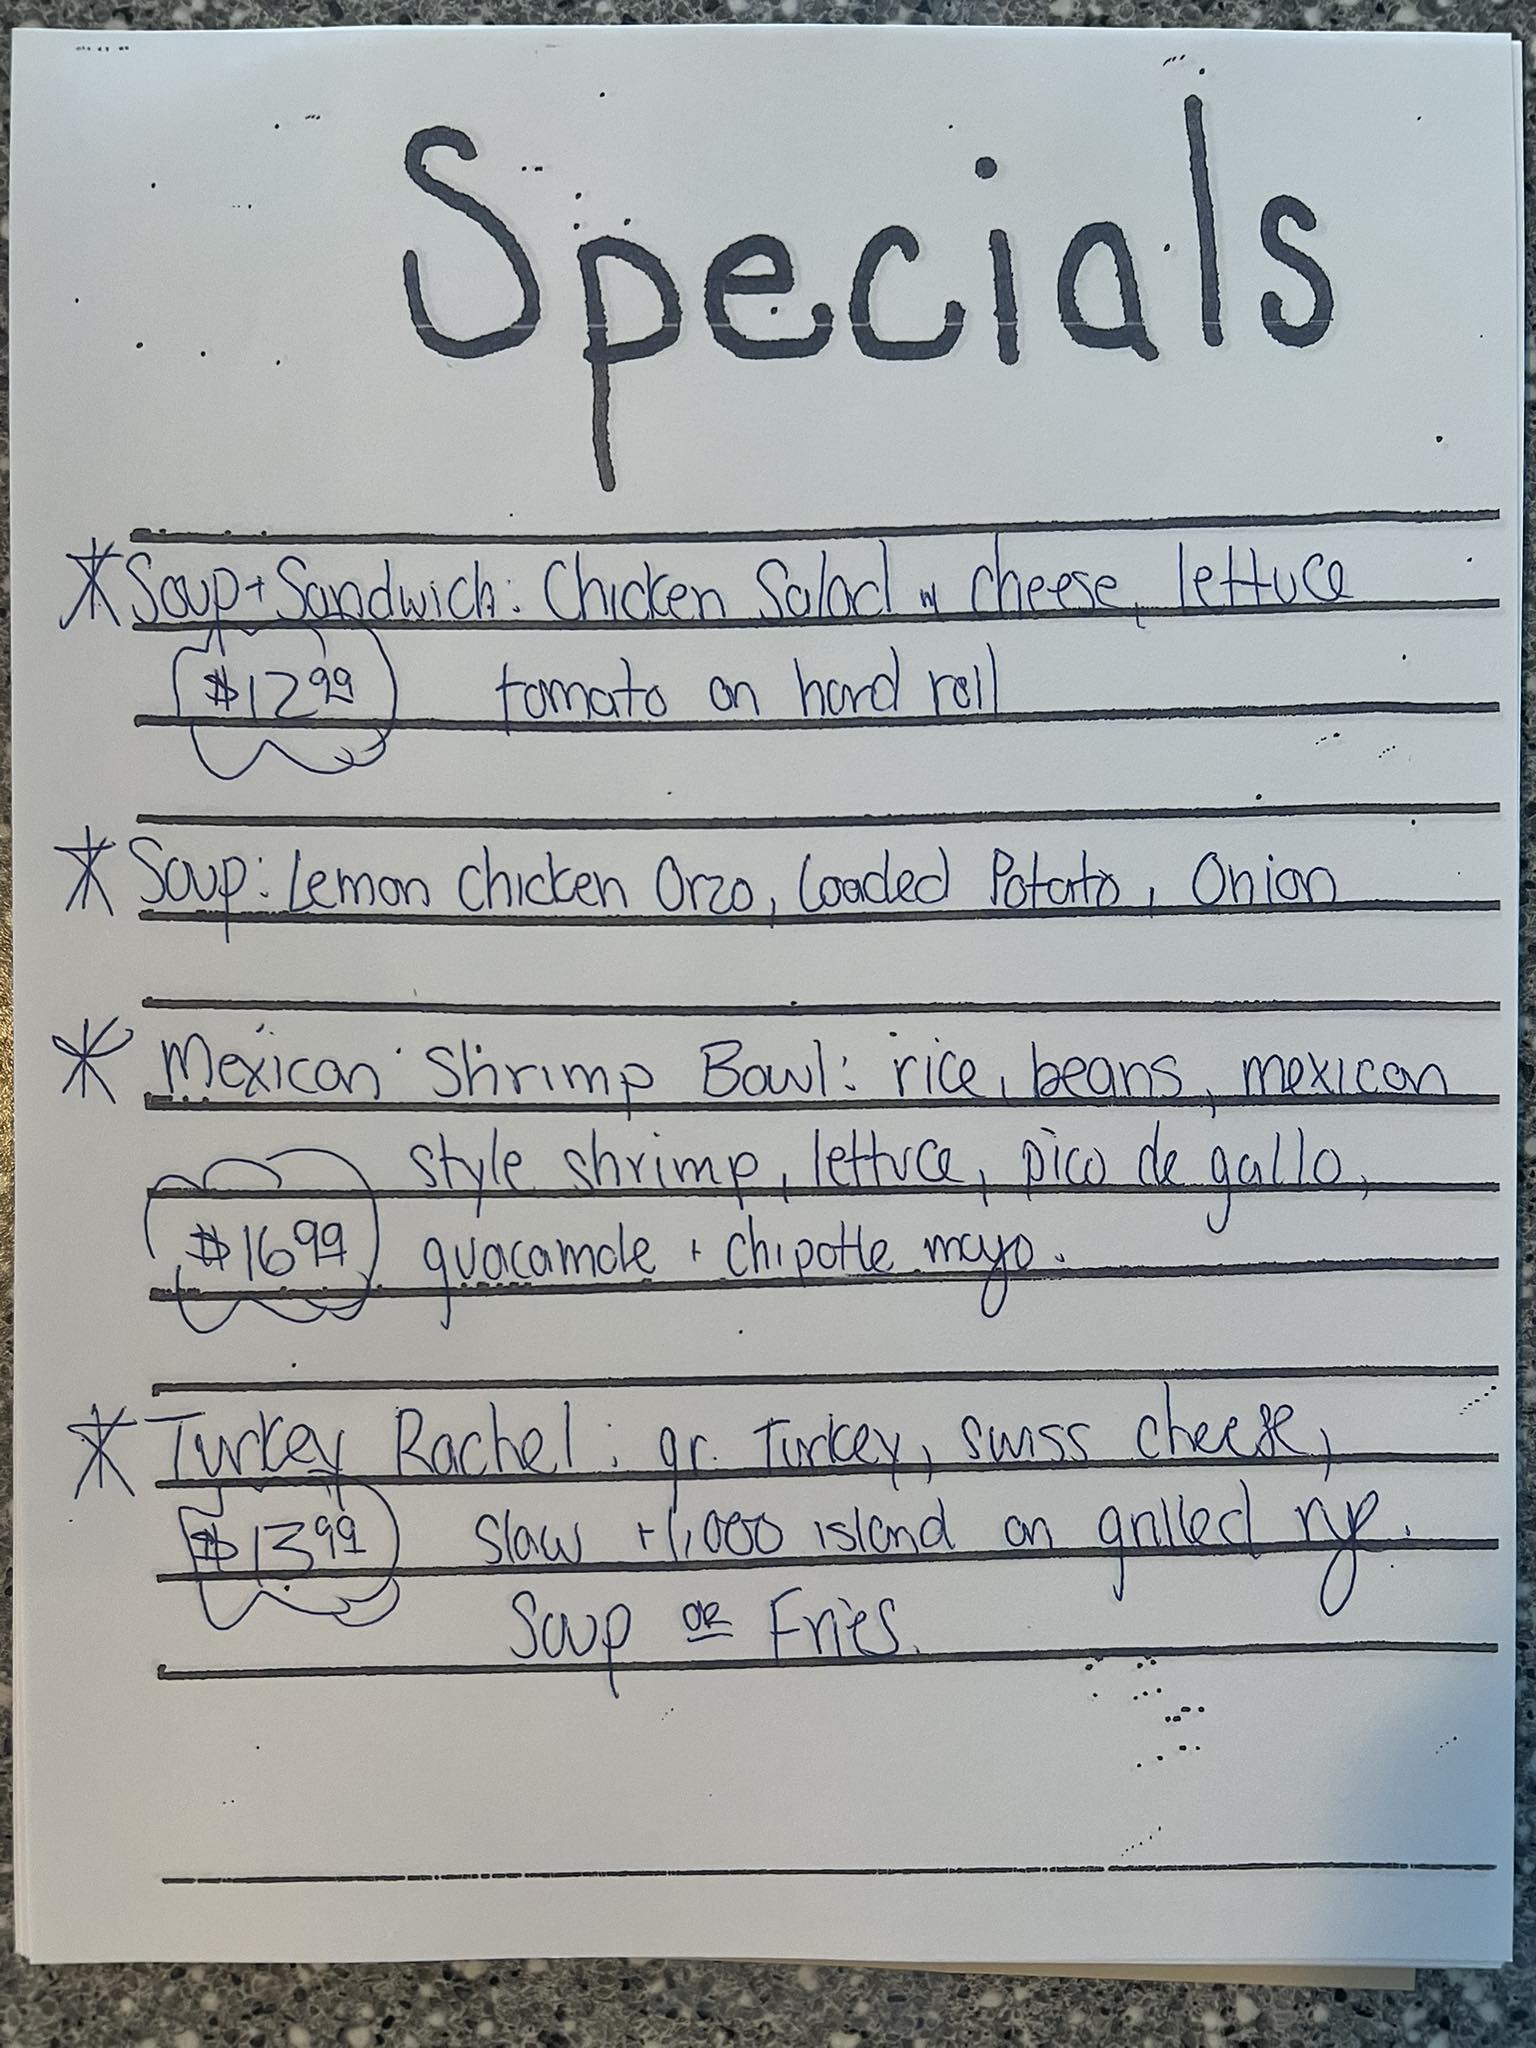 Specials
* Soup + Sandwich: Chicken Salad w cheese, lettuce
$12.99 tomato on hard roll
* Soup: Lemon Chicken Orzo, Loaded Potato, Onion
* Mexican Shrimp Bowl: rice, beans, mexican
style shrimp, lettuce, pico de gallo,
$16.99 guacamole + chipotle mayo.
* Turkey Rachel: gr. Turkey, swiss cheese,
$13.99 slaw + 1,000 island on grilled rye.
Soup OR Fries.